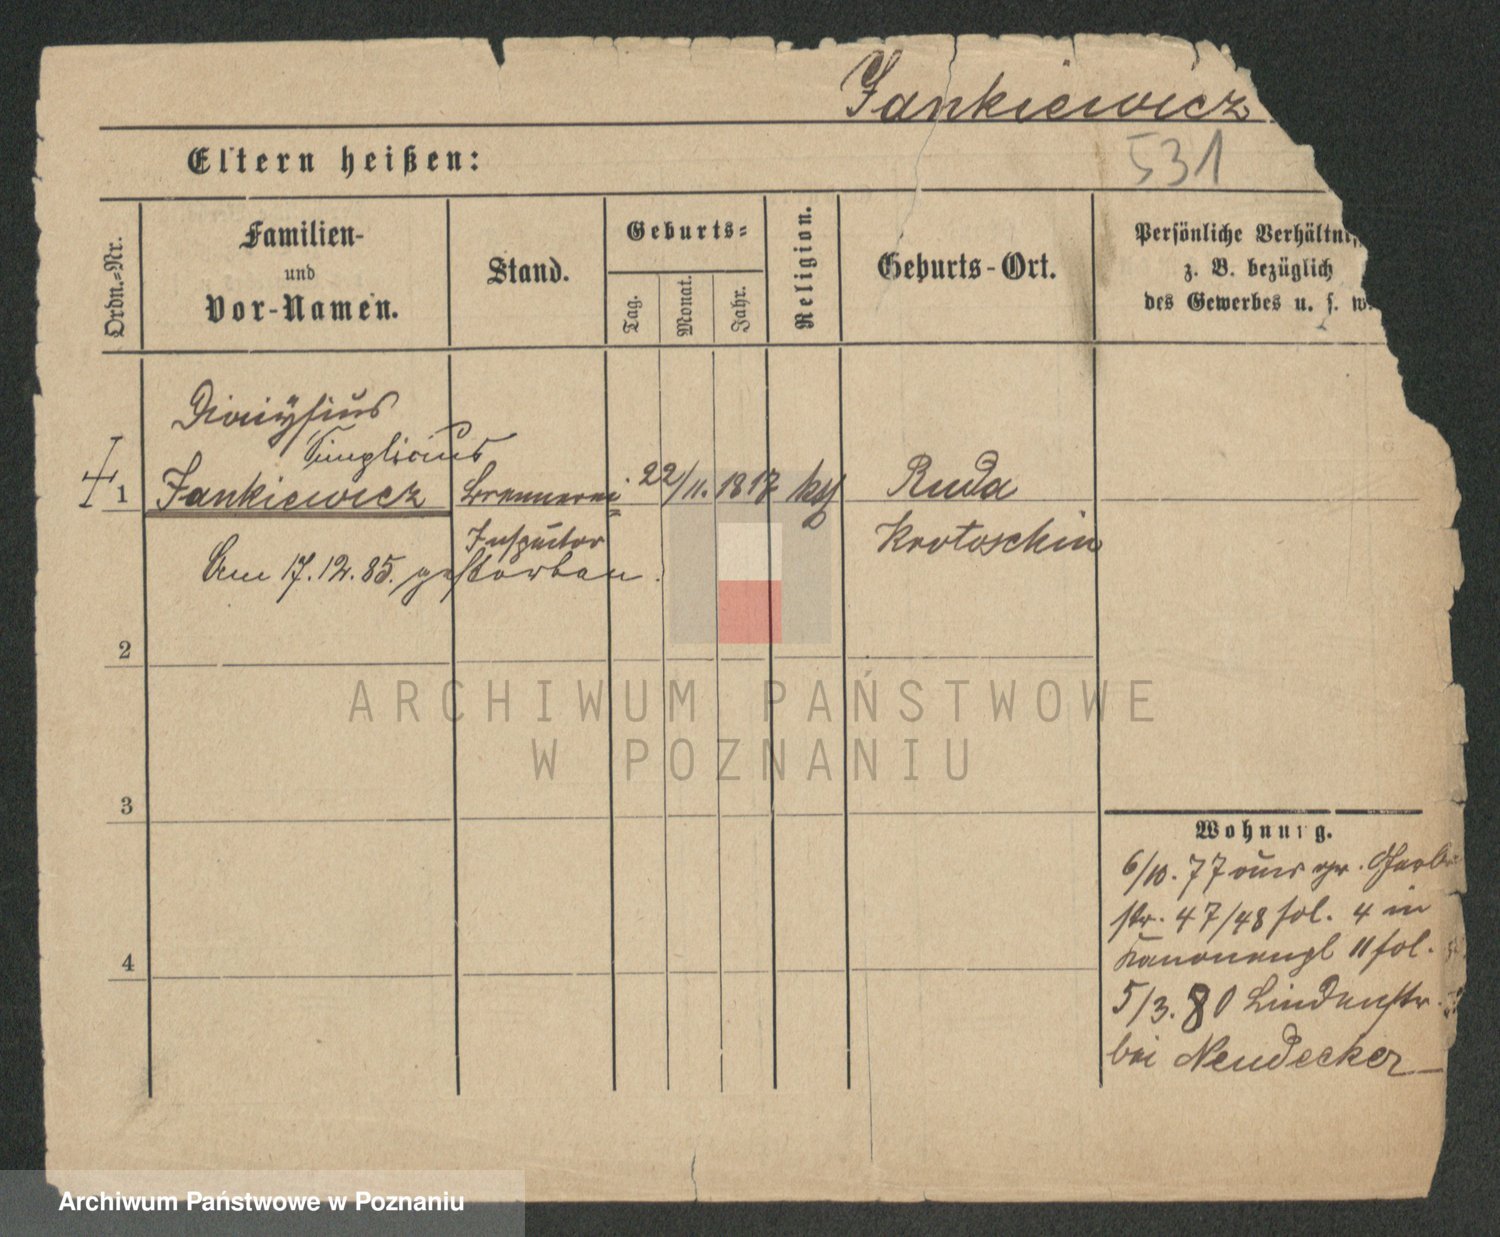 Jankiewicz
531
Eltern heißen:
Ordn.-Nr.
Familien-
und
Vor-Namen.
Stand.
Geburts-
Tag.
Monat.
Jahr.
Religion.
Geburts-Ort.
Persönliche Verhältnis
z. B. bezüglich
des Gewerbes u. s. w.
Dionysius
1 Jankiewicz Brennerei 22/11. 1817 kth Ruda
Inspector Krotoschin
Am 17.12.85. gestorben.
2
3
4
Wohnung.
6/10. 77 aus gr. Gerber
str. 47/48 fol. 4 in
Kanonenpl 11 fol.
5/3. 80 Lindenstr.
bei Neudecker
ARCHIWUM PAŃSTWOWE
W POZNANIU
Archiwum Państwowe w Poznaniu